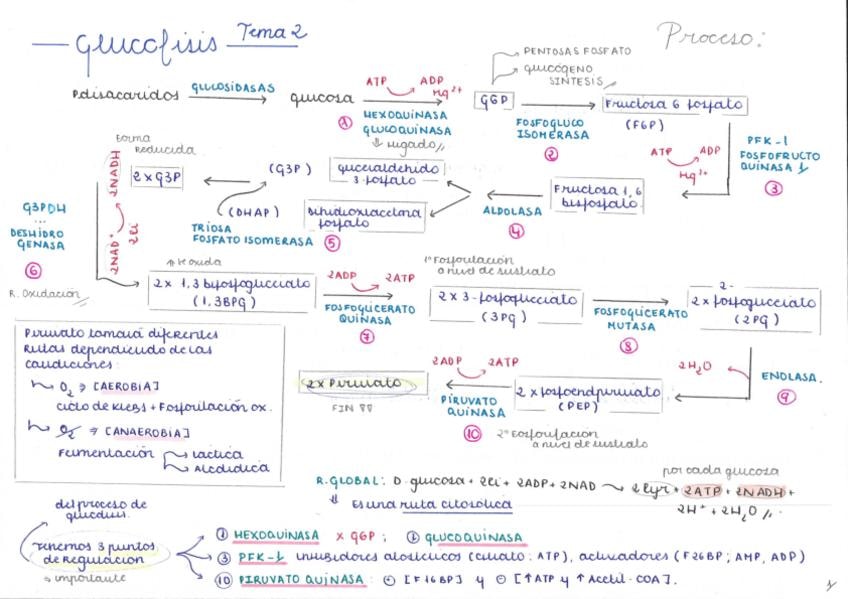 Glucólisis Tema 2
Proceso:
PENTOSAS FOSFATO
glucógeno
SÍNTESIS
P.disacáridos GLUCOSIDASAS glucosa
ATP ADP
Mg²⁺
① HEXOQUINASA
GLUCOQUINASA
↳ hígado
G6P
FOSFOGLUCO
ISOMERASA
②
Fructosa 6 fosfato
(F6P)
ATP ADP
Mg²⁺
PFK-1
FOSFOFRUCTO
QUINASA 1
③
Fructosa 1,6
bisfosfato
ALDOLASA
④
(G3P) gliceraldehído
3-fosfato
(DHAP) Dihidroxiacetona
fosfato
TRIOSA
FOSFATO ISOMERASA ⑤
Forma
Reducida
2 x G3P
2NAD⁺ 2NADH
2Pi
G3PDH
...
DESHIDRO
GENASA
⑥
R. Oxidación
se oxida
2 x 1,3 bifosfoglicerato
(1,3BPG)
2ADP 2ATP
FOSFOGLICERATO
QUINASA
⑦
1ª Fosforilación
a nivel de sustrato
2 x 3-fosfoglicerato
(3PG)
FOSFOGLICERATO
MUTASA
⑧
2-
2 x fosfoglicerato
(2PG)
2H₂O
ENOLASA.
⑨
2 x fosfoenolpiruvato
(PEP)
2ADP 2ATP
PIRUVATO
QUINASA
⑩
2ª Fosforilación
a nivel de sustrato
2 x Piruvato
FIN !!
Piruvato tomará diferentes
Rutas dependiendo de las
condiciones:
↳ O₂ ⇒ [AEROBIA]
ciclo de Krebs + Fosforilación ox.
↳ O₂ ⇒ [ANAEROBIA]
Fermentación → Láctica
→ Alcohólica
por cada glucosa
R.GLOBAL: D-glucosa + 2Pi + 2ADP + 2NAD → 2Pyr + 2ATP + 2NADH +
2H⁺ + 2H₂O
⇓ Es una ruta citosólica
del proceso de
glucólisis.
Tenemos 3 puntos
de Regulación
↳ importante
① HEXOQUINASA x G6P; ① GLUCOQUINASA
③ PFK-1 inhibidores alostéricos (citrato; ATP), activadores (F26BP; AMP, ADP)
⑩ PIRUVATO QUINASA: ⊕ [F16BP] y ⊖ [↑ATP y ↑Acetil-COA].
1